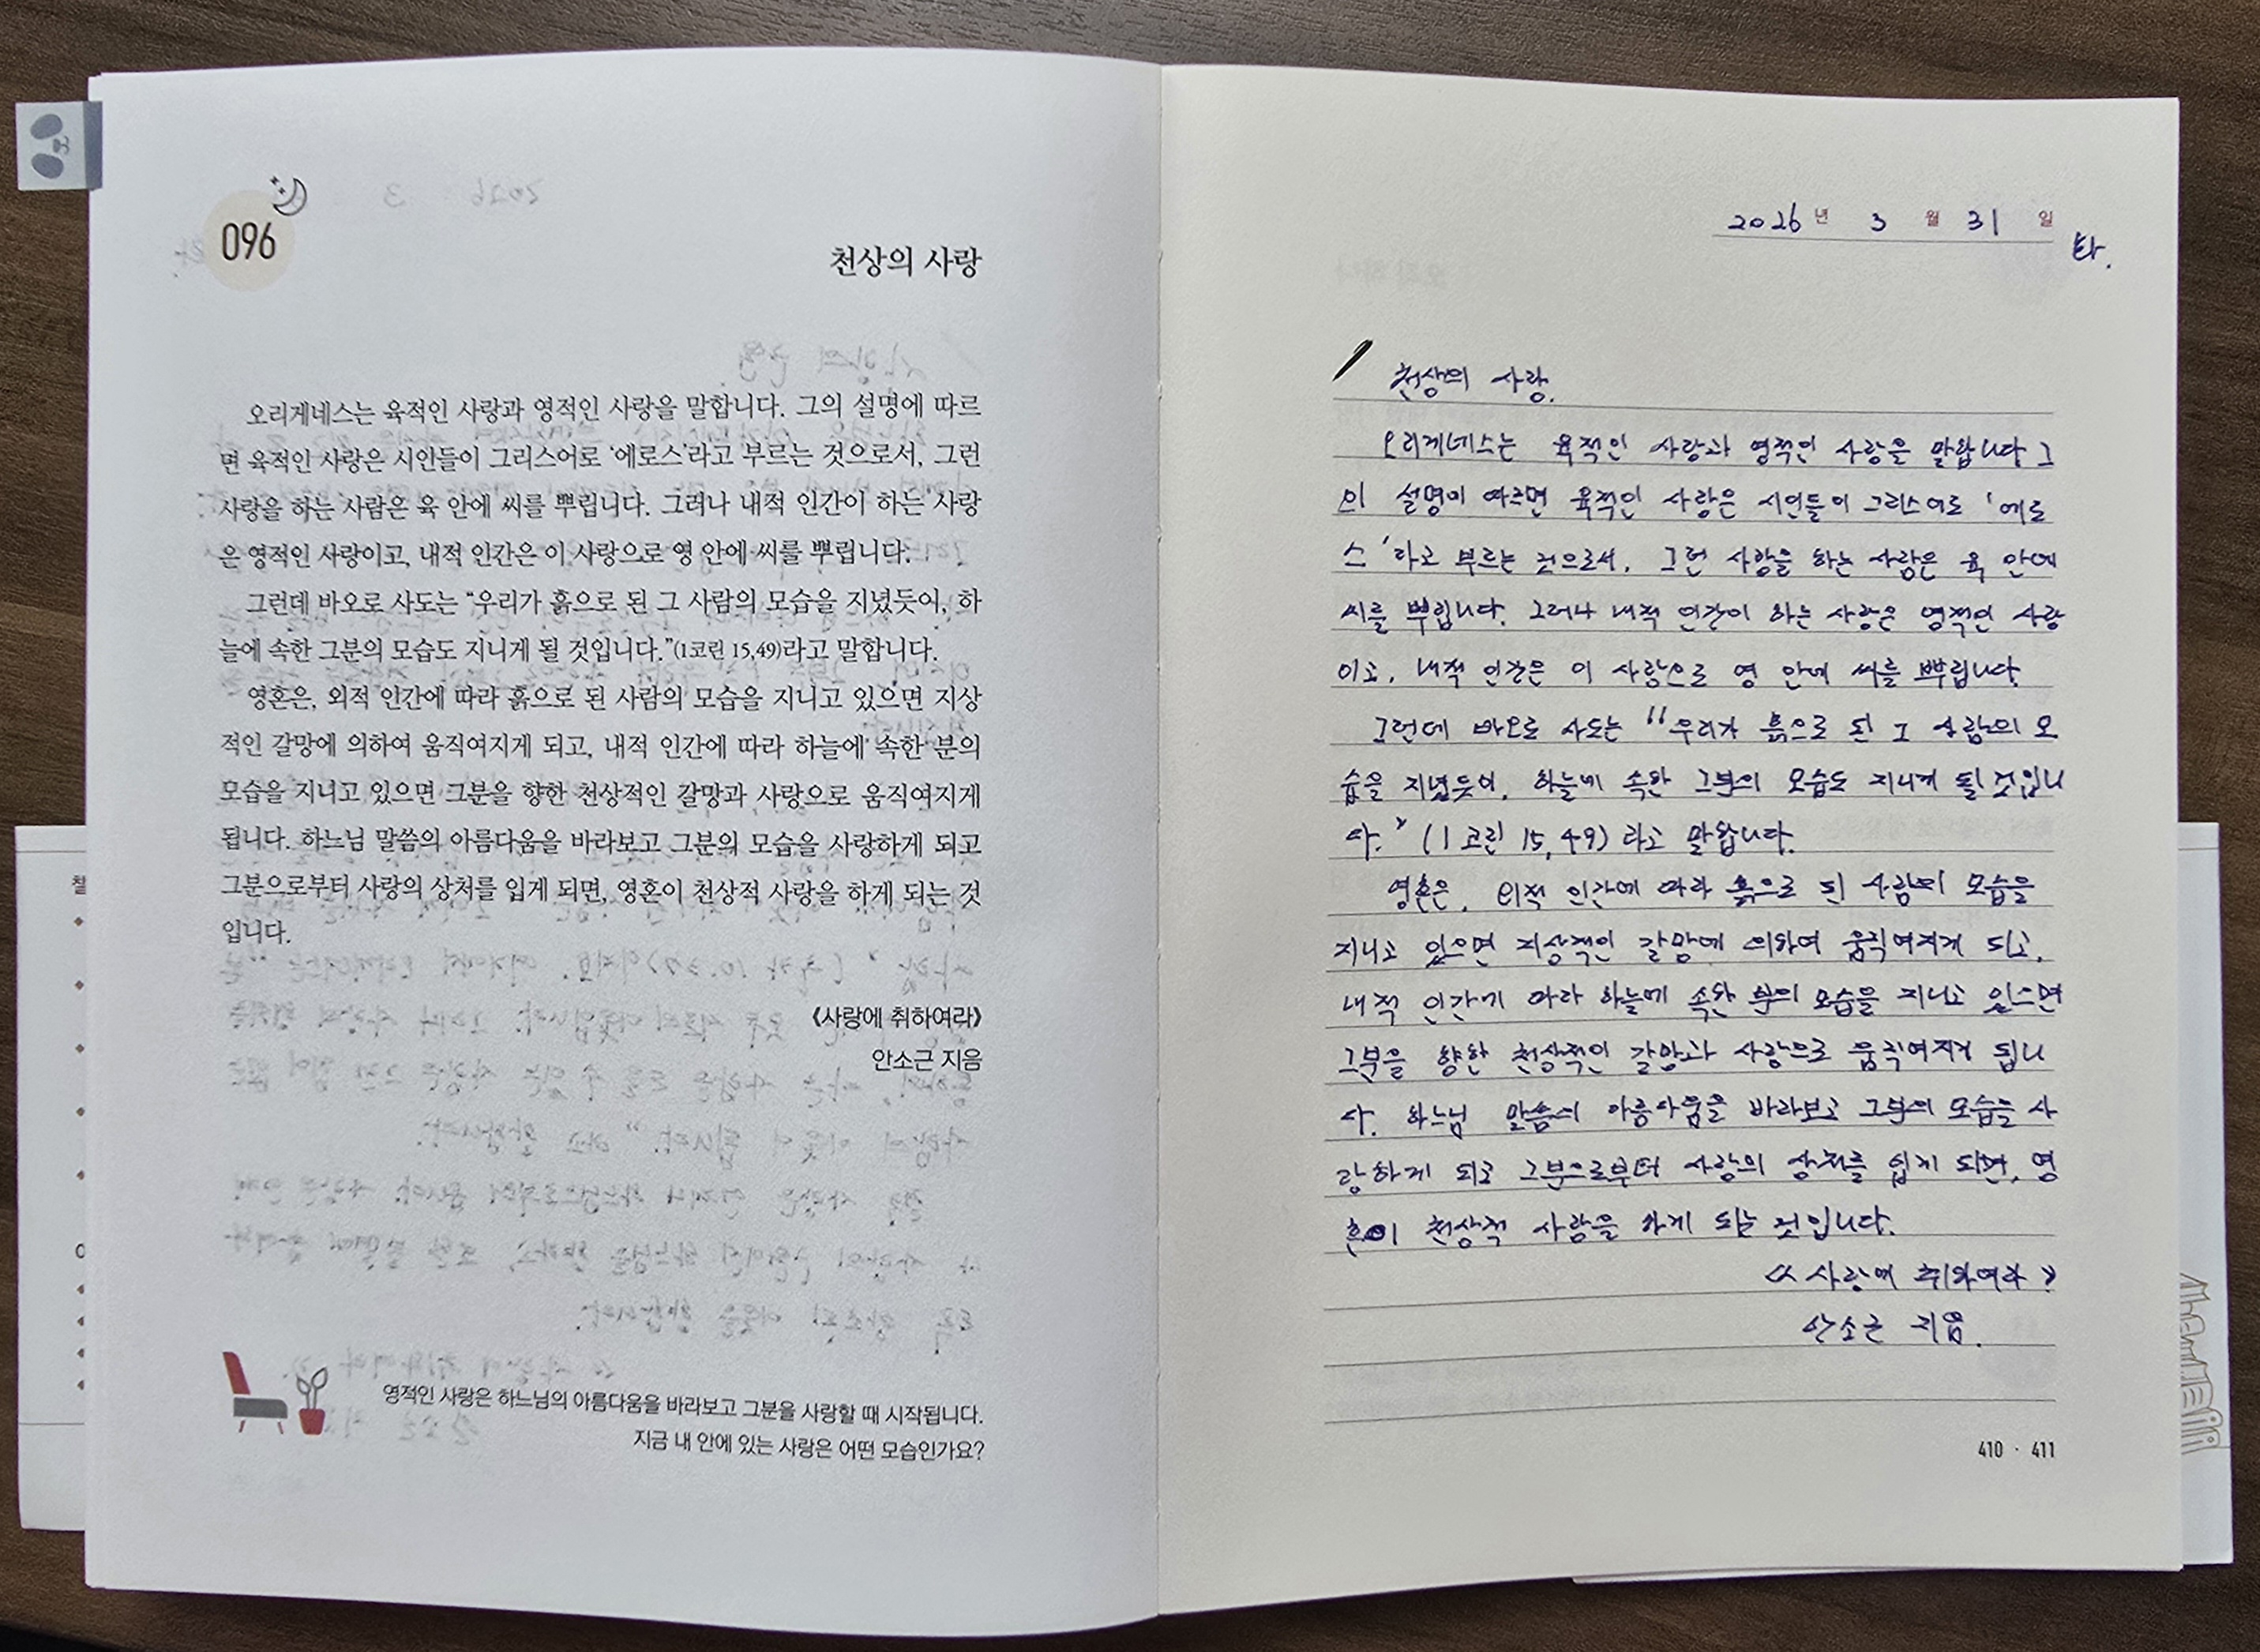 096
천상의 사랑
오리게네스는 육적인 사랑과 영적인 사랑을 말합니다. 그의 설명에 따르
면 육적인 사랑은 시인들이 그리스어로 ‘에로스’라고 부르는 것으로서, 그런
사랑을 하는 사람은 육 안에 씨를 뿌립니다. 그러나 내적 인간이 하는 사랑
은 영적인 사랑이고, 내적 인간은 이 사랑으로 영 안에 씨를 뿌립니다.
그런데 바오로 사도는 “우리가 흙으로 된 그 사람의 모습을 지녔듯이, 하
늘에 속한 그분의 모습도 지니게 될 것입니다.”(1코린 15,49)라고 말합니다.
영혼은, 외적 인간에 따라 흙으로 된 사람의 모습을 지니고 있으면 지상
적인 갈망에 의하여 움직여지게 되고, 내적 인간에 따라 하늘에 속한 분의
모습을 지니고 있으면 그분을 향한 천상적인 갈망과 사랑으로 움직여지게
됩니다. 하느님 말씀의 아름다움을 바라보고 그분의 모습을 사랑하게 되고
그분으로부터 사랑의 상처를 입게 되면, 영혼이 천상적 사랑을 하게 되는 것
입니다.
《사랑에 취하여라》
안소근 지음
영적인 사랑은 하느님의 아름다움을 바라보고 그분을 사랑할 때 시작됩니다.
지금 내 안에 있는 사랑은 어떤 모습인가요?
2026년 3월 31일
화.
천상의 사랑.
오리게네스는 육적인 사랑과 영적인 사랑을 말합니다 그
의 설명에 따르면 육적인 사랑은 시인들이 그리스어로 ‘에로
스’라고 부르는 것으로서, 그런 사랑을 하는 사람은 육 안에
씨를 뿌립니다. 그러나 내적 인간이 하는 사랑은 영적인 사랑
이고, 내적 인간은 이 사랑으로 영 안에 씨를 뿌립니다.
그런데 바오로 사도는 “우리가 흙으로 된 그 사람의 모
습을 지녔듯이, 하늘에 속한 그분의 모습도 지니게 될 것입니
다.” (1 코린 15,49) 라고 말합니다.
영혼은, 외적 인간에 따라 흙으로 된 사람의 모습을
지니고 있으면 지상적인 갈망에 의하여 움직여지게 되고,
내적 인간에 따라 하늘에 속한 분의 모습을 지니고 있으면
그분을 향한 천상적인 갈망과 사랑으로 움직여지게 됩니
다. 하느님 말씀의 아름다움을 바라보고 그분의 모습을 사
랑하게 되고 그분으로부터 사랑의 상처를 입게 되면, 영
혼이 천상적 사랑을 하게 되는 것입니다.
《사랑에 취하여라》
안소근 지음.
410 · 411